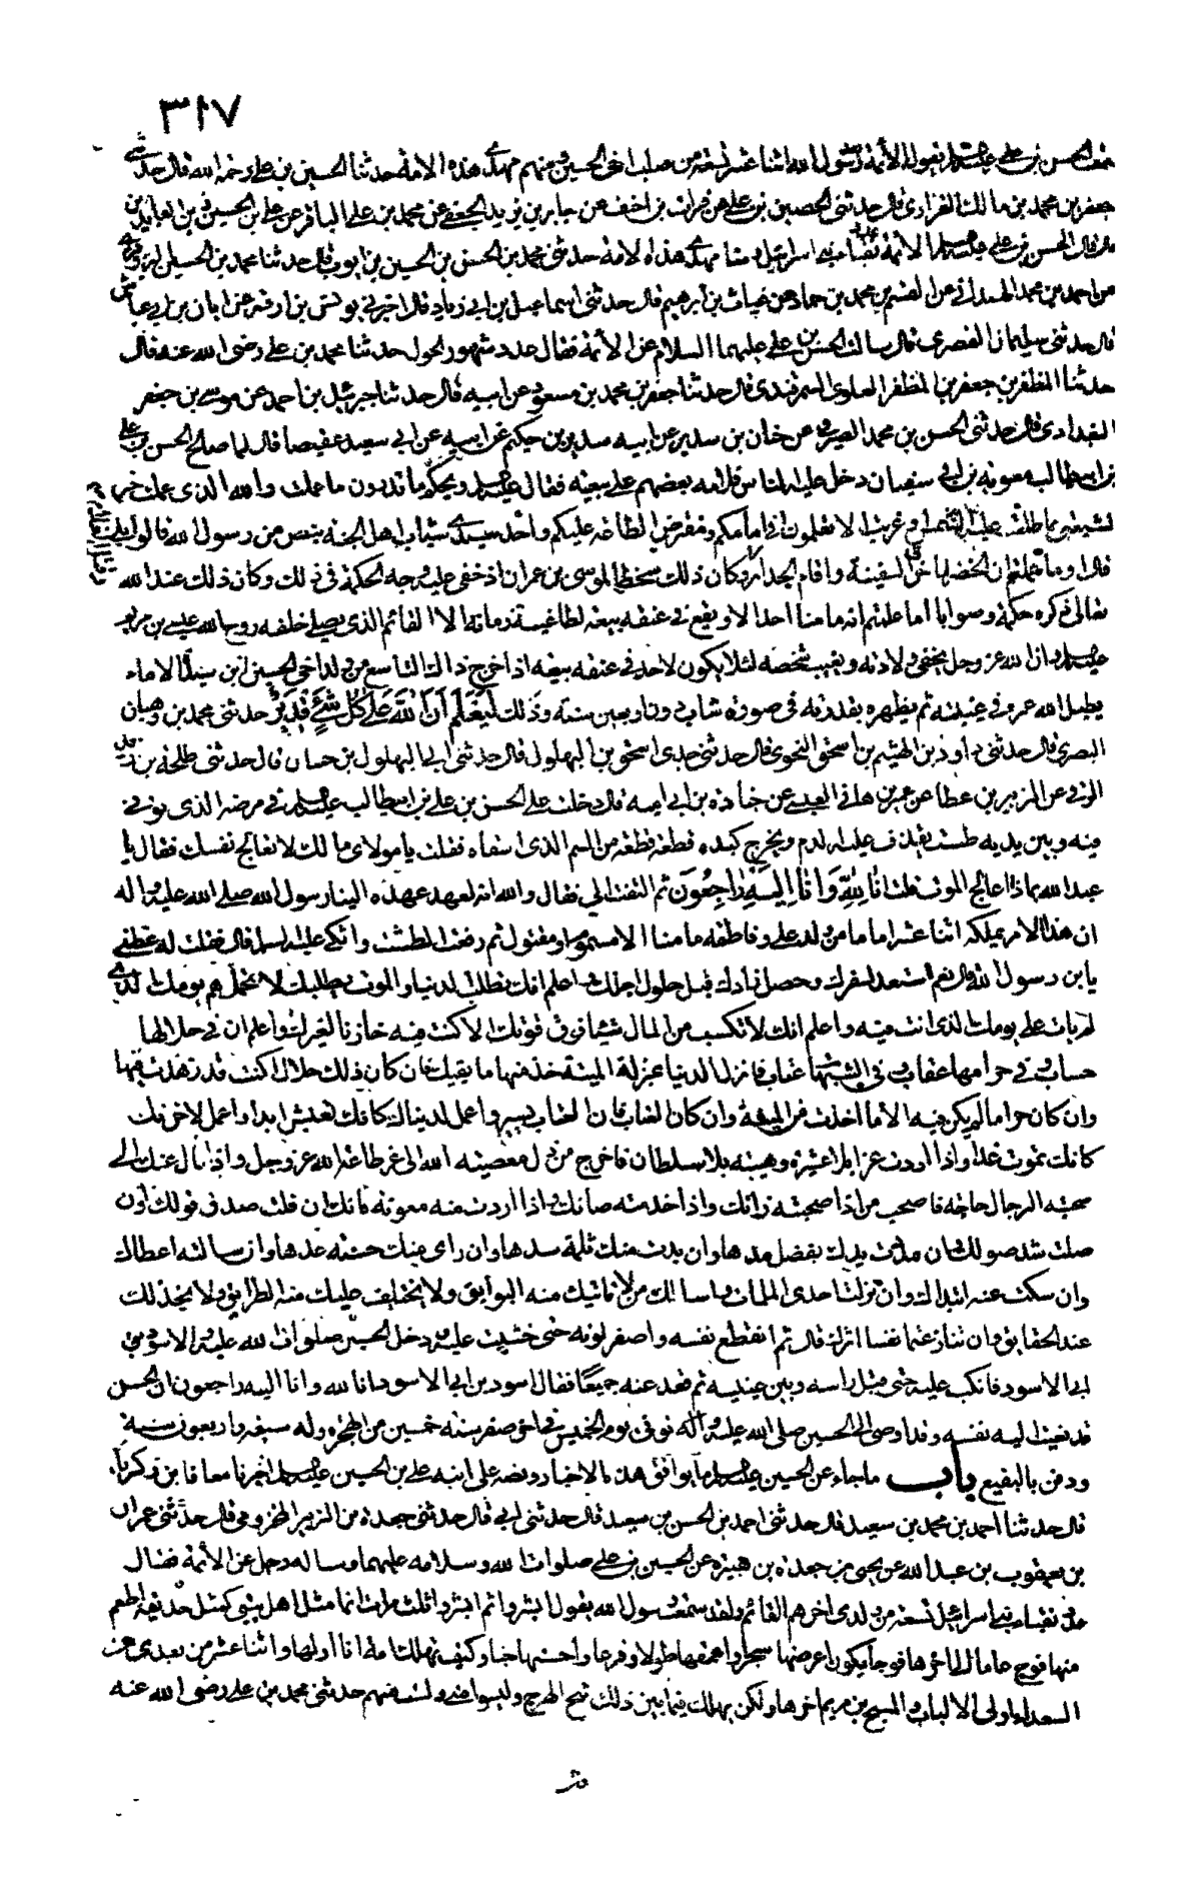 ٣١٧
الحسن بن علي عليهما السلام يقول الأئمة بعد رسول الله اثنا عشر تسعة من صلب اخي الحسين ومنهم مهدي هذه الامة حدثنا الحسين بن علي رحمه الله قال حدثني
جعفر بن محمد بن مالك الفزاري قال حدثني الحصين بن علي عن فرات بن احنف عن جابر بن يزيد الجعفي عن محمد بن علي الباقر عن علي بن الحسين زين العابدين
قال قال الحسن بن علي عليهما السلام الأئمة عدد نقباء بني اسرائيل ومنا مهدي هذه الامة حدثني محمد بن الحسن بن الحسين بن ايوب قال حدثنا محمد بن الحسين البزوفري
عن احمد بن محمد الهمداني عن القسم بن محمد بن حماد عن غياث بن ابرهيم قال حدثني اسماعيل بن ابي زياد قال اخبرني يونس بن ارقم عن ابان بن ابي عياش
قال حدثني سليمان القصري قال سالت الحسن بن علي عليهما السلام عن الأئمة فقال عدد شهور الحول حدثنا محمد بن علي رضي الله عنه قال
حدثنا المظفر بن جعفر بن المظفر العلوي السمرقندي قال حدثنا جعفر بن محمد بن مسعود عن ابيه قال حدثنا جبرئيل بن احمد عن موسى بن جعفر
البغدادي قال حدثني الحسن بن محمد الصيرفي عن حنان بن سدير عن ابيه سدير بن حكيم عن ابيه عن ابي سعيد عقيصا قال لما صالح الحسن بن علي
بن ابيطالب معوية بن ابي سفيان دخل عليه الناس فلامه بعضهم على بيعته فقال عليه السلام ويحكم ما تدرون ما عملت والله الذي عملت خير
لشيعتي مما طلعت عليه الشمس او غربت الا تعلمون اني امامكم ومفترض الطاعة عليكم واحد سيدي شباب اهل الجنة بنص من رسول الله قالوا بلى
قال اوما علمتم ان الخضر لما خرق السفينة واقام الجدار وكان ذلك سخطا لموسى بن عمران اذ خفي عليه وجه الحكمة في ذلك وكان ذلك عند الله
تعالى ذكره حكمة وصوابا اما علمتم انه ما منا احد الا ويقع في عنقه بيعة لطاغية زمانه الا القائم الذي يصلي خلفه روح الله عيسى بن مريم
عليه السلام وان الله عز وجل يخفي ولادته ويغيب شخصه لئلا يكون لاحد في عنقه بيعة اذا خرج ذاك التاسع من ولد اخي الحسين ابن سيدة الاماء
يطيل الله عمره في غيبته ثم يظهره بقدرته في صورة شاب دون اربعين سنة وذلك ليعلم ان الله على كل شيء قدير حدثني محمد بن وهبان
البصري قال حدثني داود بن الهيثم بن اسحق النحوي قال حدثني جدي اسحق بن البهلول قال حدثني ابي البهلول بن حسان قال حدثني طلحة بن زيد
الرقي عن الزبير بن عطا عن عمير بن هاني العبسي عن جنادة بن ابي امية قال دخلت على الحسن بن علي بن ابيطالب عليه السلام في مرضه الذي توفي
فيه وبين يديه طست يقذف عليه الدم ويخرج كبده قطعة قطعة من السم الذي اسقاه فقلت يا مولاي ما لك لا تعالج نفسك فقال يا
عبد الله بماذا اعالج الموت قلت انا لله وانا اليه راجعون ثم التفت الي فقال والله انه لعهد عهده الينا رسول الله صلى الله عليه واله
ان هذا الامر يملكه اثنا عشر اماما من ولد علي وفاطمة ما منا الا مسموم او مقتول ثم رفعت الطشت واتكى عليه السلام قال فقلت له عظني
يا بن رسول الله قال نعم استعد لسفرك وحصل زادك قبل حلول اجلك واعلم انك تطلب الدنيا والموت يطلبك لا تحمل هم يومك الذي
لم يات على يومك الذي انت فيه واعلم انك لا تكسب من المال شيئا فوق قوتك الا كنت فيه خازنا لغيرك واعلم ان في حلالها
حساب وفي حرامها عقاب وفي الشبهات عتاب فانزل الدنيا بمنزلة الميتة خذ منها ما يكفيك فان كان ذلك حلالا كنت قد زهدت فيها
وان كان حراما لم يكن فيه الا ما اخذت من الميتة وان كان العتاب فان العتاب يسير واعمل لدنياك كانك تعيش ابدا واعمل لاخرتك
كانك تموت غدا واذا اردت عزا بلا عشيرة وهيبة بلا سلطان فاخرج من ذل معصية الله الى عز طاعة الله عز وجل واذا نازعتك الى
صحبة الرجال حاجة فاصحب من اذا صحبته زانك واذا خدمته صانك واذا اردت منه معونة فانك ان قلت صدق قولك وان
صلت شد صولك وان مددت يدك بفضل مدها وان بدت منك ثلمة سدها وان راى منك حسنة عدها وان سالته اعطاك
وان سكت عنه ابتداك وان نزلت احدى الملمات به اسالك من لا تاتيك منه البوائق ولا يختلف عليك منه الطرائق ولا يخذلك
عند الحقايق وان تنازعتما نفسا اثرك قال ثم انقطع نفسه واصفر لونه حتى خشيت عليه ودخل الحسين صلوات الله عليه والاسود بن
ابي الاسود فانكب عليه حتى قبل راسه وبين عينيه ثم قعد عنده جميعا فقال اسود بن ابي الاسود انا لله وانا اليه راجعون ان الحسن
قد نعيت اليه نفسه وقد اوصى الى الحسين صلى الله عليه واله توفي يوم الخميس في اخر صفر سنة خمسين من الهجرة وله سبعة واربعون سنة
ودفن بالبقيع باب ما جاء عن الحسين عليه السلام ما يوافق هذه الاخبار ونصه على ابنه علي بن الحسين عليه السلام اخبرنا معافا بن زكريا
قال حدثنا احمد بن محمد بن سعيد قال حدثني احمد بن الحسن بن سعيد قال حدثني ابي قال حدثني جعدة من الزبير المخزومي قال حدثني عمران
بن يعقوب بن عبد الله عن يحيى بن جعدة بن هبيرة عن الحسين بن علي صلوات الله وسلامه عليهما وساله رجل عن الأئمة فقال
عدد نقباء بني اسرائيل تسعة من ولدي اخرهم القائم ولقد سمعت رسول الله يقول ابشروا ثم ابشروا ثلث مرات انما مثل اهل بيتي كمثل حديقة اطعم
منها فوج عاما الى اخرها فوجا يكون اعرضها بحرا واعمقها طولا وفرعا واحسنها جنا وكيف تهلك امة انا اولها واثنا عشر من بعدي من
السعداء اولي الالباب والمسيح بن مريم اخرها ولكن يهلك فيما بين ذلك نتج الهرج وليسوا مني ولست منهم حدثني محمد بن علي رضي الله عنه